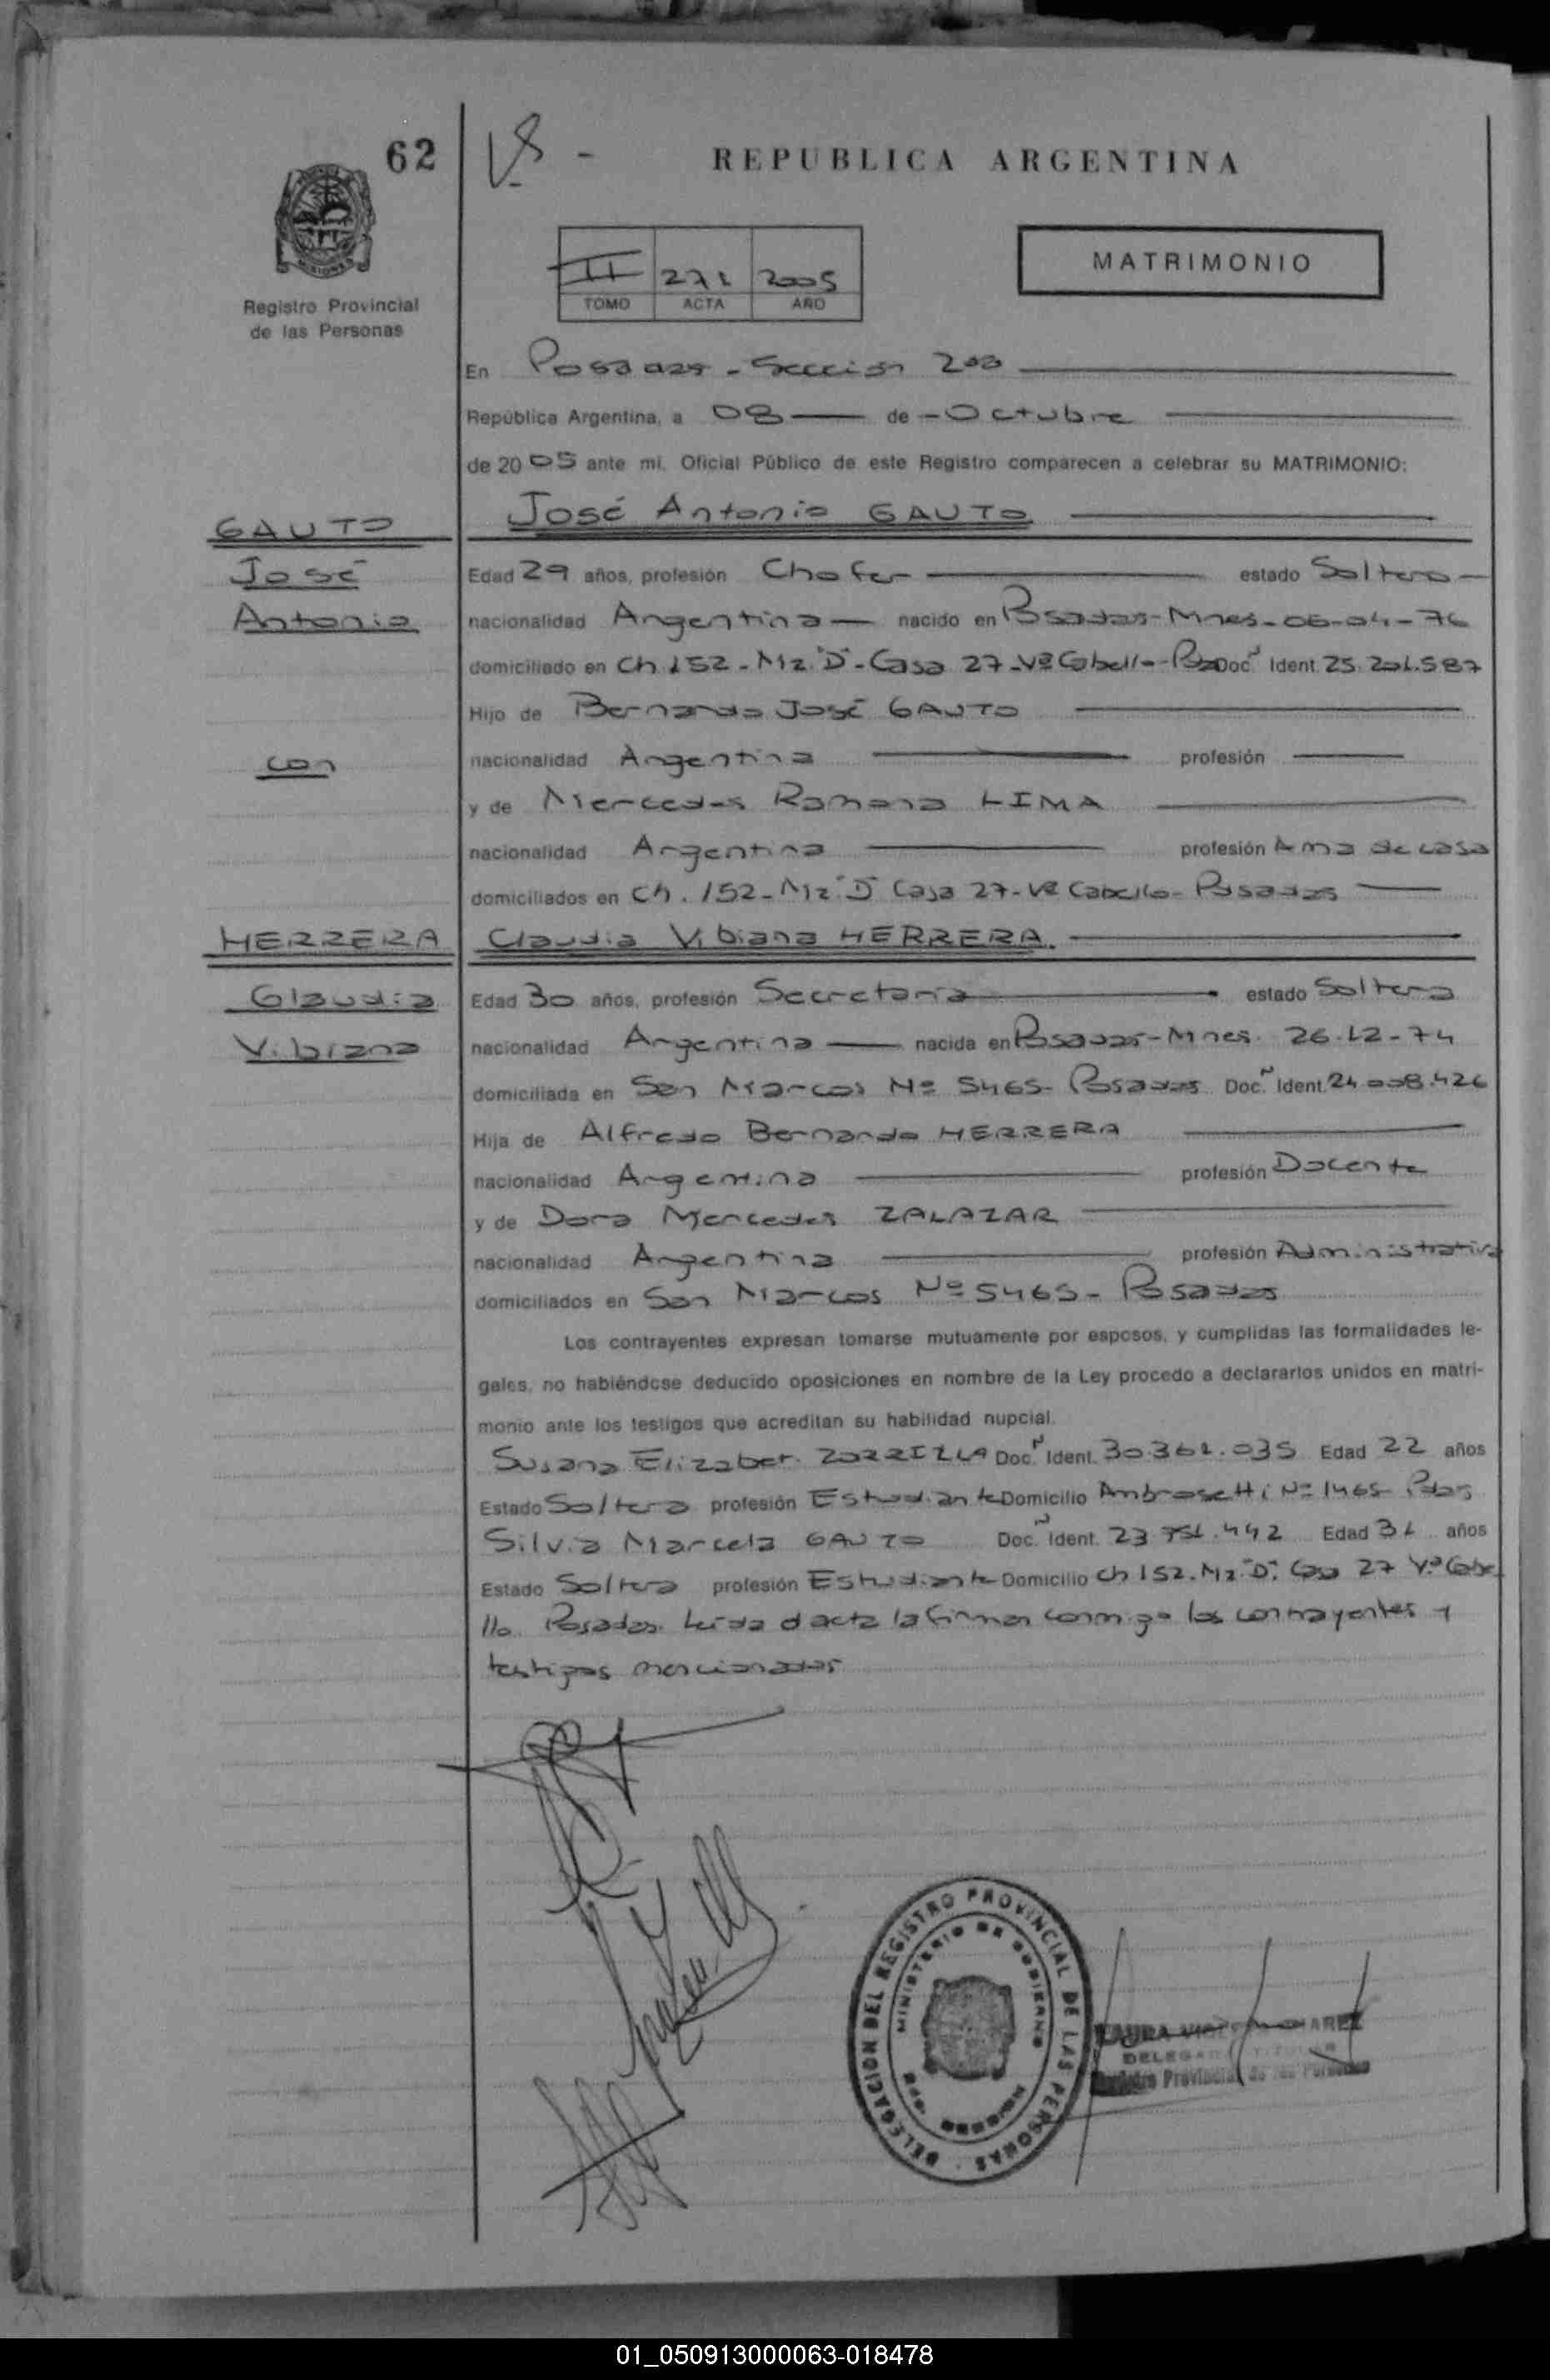 62
REPUBLICA ARGENTINA
MISIONES
Registro Provincial
de las Personas
II 271 2005
TOMO ACTA AÑO
MATRIMONIO
En Posadas - Sección 2da
República Argentina, a 08 de - Octubre
de 2005 ante mi, Oficial Público de este Registro comparecen a celebrar su MATRIMONIO:
GAUTO
José
Antonio
con
José Antonio GAUTO
Edad 29 años, profesión Chofer estado Soltero
nacionalidad Argentina nacido en Posadas - Mnes - 06-04-76
domiciliado en Ch 152 - Mz "D" - Casa 27 - Vª Cabello - Doc. Ident. 25.201.587
Hijo de Bernardo José GAUTO
nacionalidad Argentina profesión
y de Mercedes Ramona LIMA
nacionalidad Argentina profesión Ama de casa
domiciliados en Ch. 152 - Mz "D" Casa 27 - Vª Cabello - Posadas
HERRERA
Claudia
Vibiana
Claudia Vibiana HERRERA.
Edad 30 años, profesión Secretaria estado Soltera
nacionalidad Argentina nacida en Posadas - Mnes. 26-12-74
domiciliada en San Marcos Nº 5465 - Posadas Doc. Ident. 24.008.426
Hija de Alfredo Bernardo HERRERA
nacionalidad Argentina profesión Docente
y de Dora Mercedes ZALAZAR
nacionalidad Argentina profesión Administrativa
domiciliados en San Marcos Nº 5465 - Posadas
Los contrayentes expresan tomarse mutuamente por esposos, y cumplidas las formalidades le-
gales, no habiéndose deducido oposiciones en nombre de la Ley procedo a declararlos unidos en matri-
monio ante los testigos que acreditan su habilidad nupcial.
Susana Elizabet ZORRILLA Doc. Ident. 30.361.035 Edad 22 años
Estado Soltera profesión Estudiante Domicilio Ambrosetti Nº 1465 Pdas
Silvia Marcela GAUTO Doc. Ident. 23.751.442 Edad 31 años
Estado Soltera profesión Estudiante Domicilio Ch 152. Mz "D". Casa 27 Vª Cabe
llo. Posadas. Leída el acta la firman conmigo los contrayentes y
testigos mencionados
DELEGACION DEL REGISTRO PROVINCIAL DE LAS PERSONAS
MINISTERIO DE GOBIERNO
MISIONES
LAURA
Registro Provincial de las Personas
01_050913000063-018478